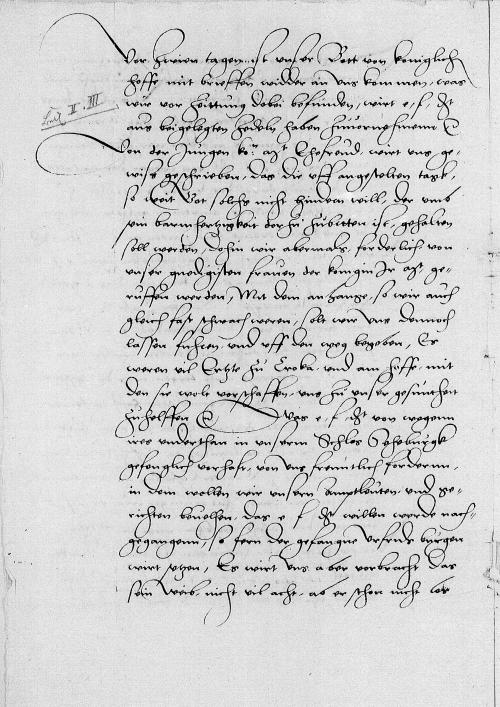 Vor zweien tagen ist unser Bott von koniglich
hoffe mit brieffen widder an uns kommen, was
wir vor zeittung dobei befunden, wirt e, f, Dt
aus beigelegten zedeln haben zuvornehmenn
Von der Jungen ko. Mt Ehefreud wirt uns ge-
wiss geschrieben, das die uff angestelten tagk,
so weit Got solchs nicht hindern will, der umb
sein barmhertzigkeit dorzu zubitten ist, gehalten
soll werden, dohin wir abermals, forderlich von
unser gnedigisten frauen der konigin Ir Mt ge-
ruffen werden, Mit dem anhange, so wir auch
gleich fast schwach weren, solt wir uns dennoch
lassen fuhren, und uff den weg begeben, Es
weren vil Ertzte zu Croka und am hoffe, mit
den sie wolt vorschaffen, uns zu unser gesuntheit
zuhelffen Was e, f, Dt von wegenn
ires underthan in unserm Schlos
gefenglich vorhaft, von uns freuntlich fordernn,
in dem wollen wir unsern amptleuten, und ge-
richten bevelhen, das e f Dt willen werde nach-
gegangenn, so fern der gefangne Urfrids burgen
wirt setzen, Es wirt uns aber vorbracht das
sein weib, nicht vil acht, ab er schon nicht